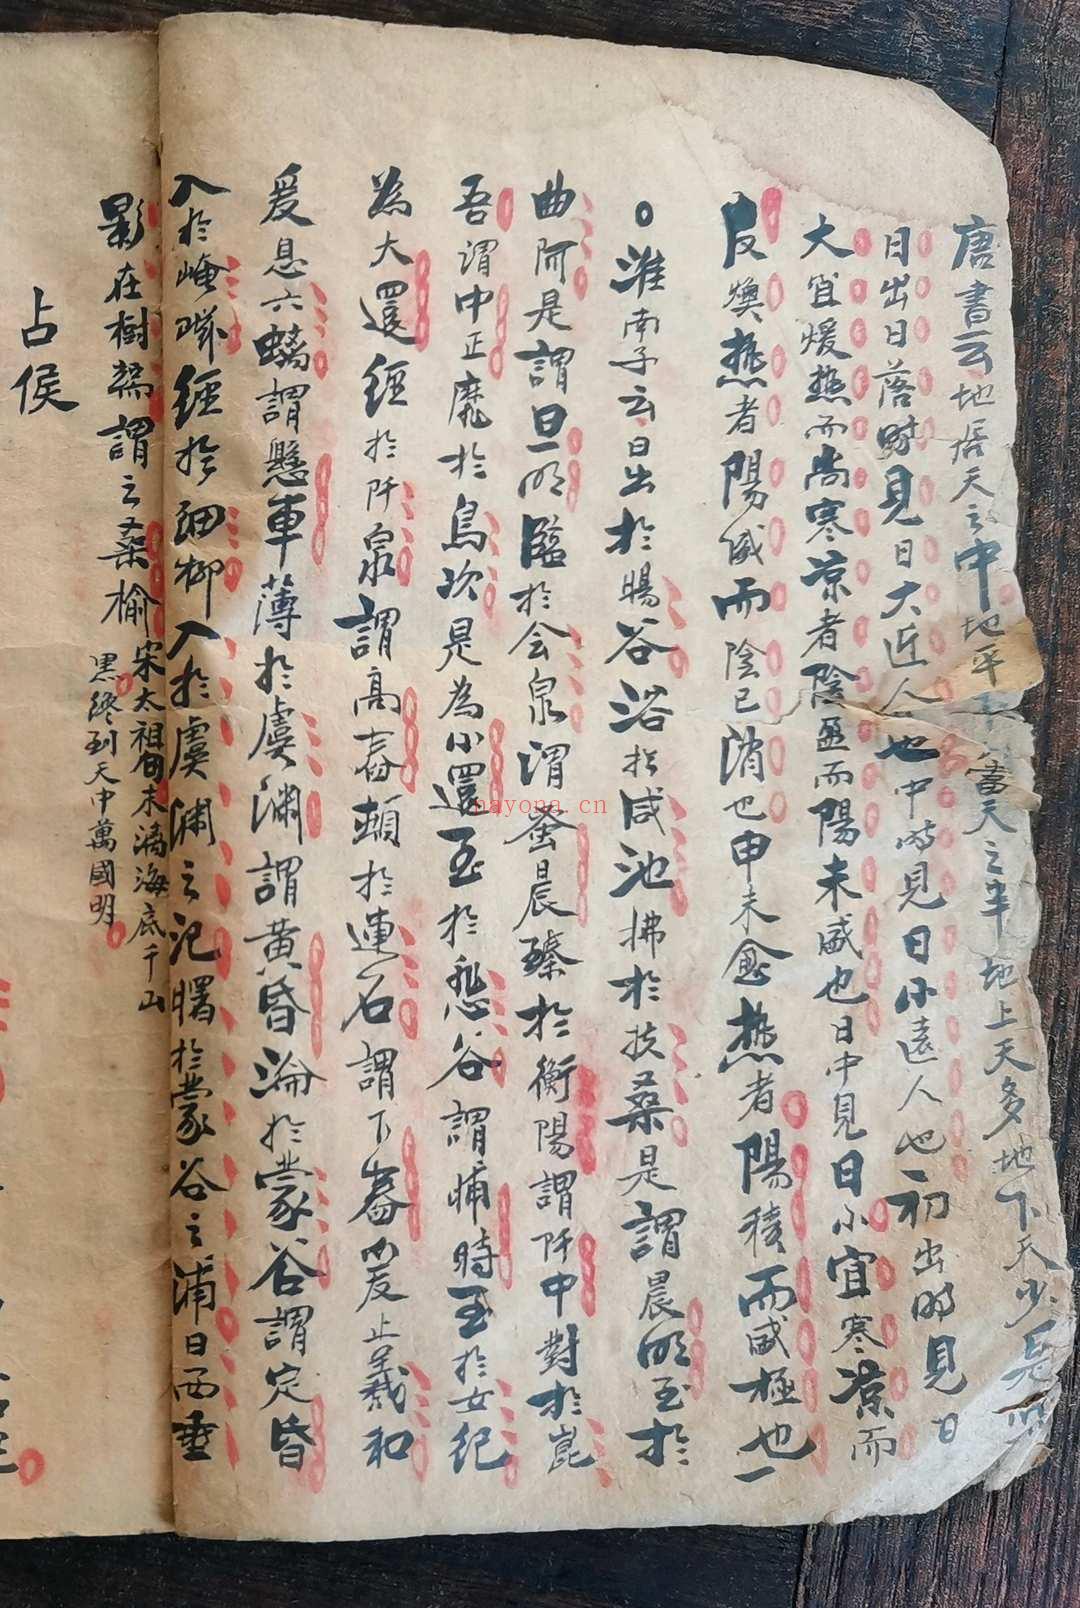 唐書云地居天之中地平不當天之半地上天多地下天少是以
日出日落時見日大近人也中時見日小遠人也初出時見日
大宜煖熱而尚寒凉者陰盈而陽未盛也日中見日小宜寒凉而
反燠熱者陽盛而陰已消也申未愈熱者陽積而盛極也一
○淮南子云日出於暘谷浴於咸池拂於扶桑是謂晨明至於
曲阿是謂旦明臨於会泉謂蚤晨臻於衡陽謂阡中對於崑
吾謂中正麾於鳥次是為小還至於悲谷謂晡時至於女紀
為大還經於阡泉謂高舂頓於連石謂下舂爰止羲和
爰息六螭謂懸車薄於虞淵謂黄昏淪於蒙谷謂定昏
入於崦嵫經於細柳入於虞淵之汜曙於蒙谷之浦日西垂
影在樹端謂之桑榆
宋太祖句未漓海底千山
黑纔到天中萬國明
占侯
nayona.cn